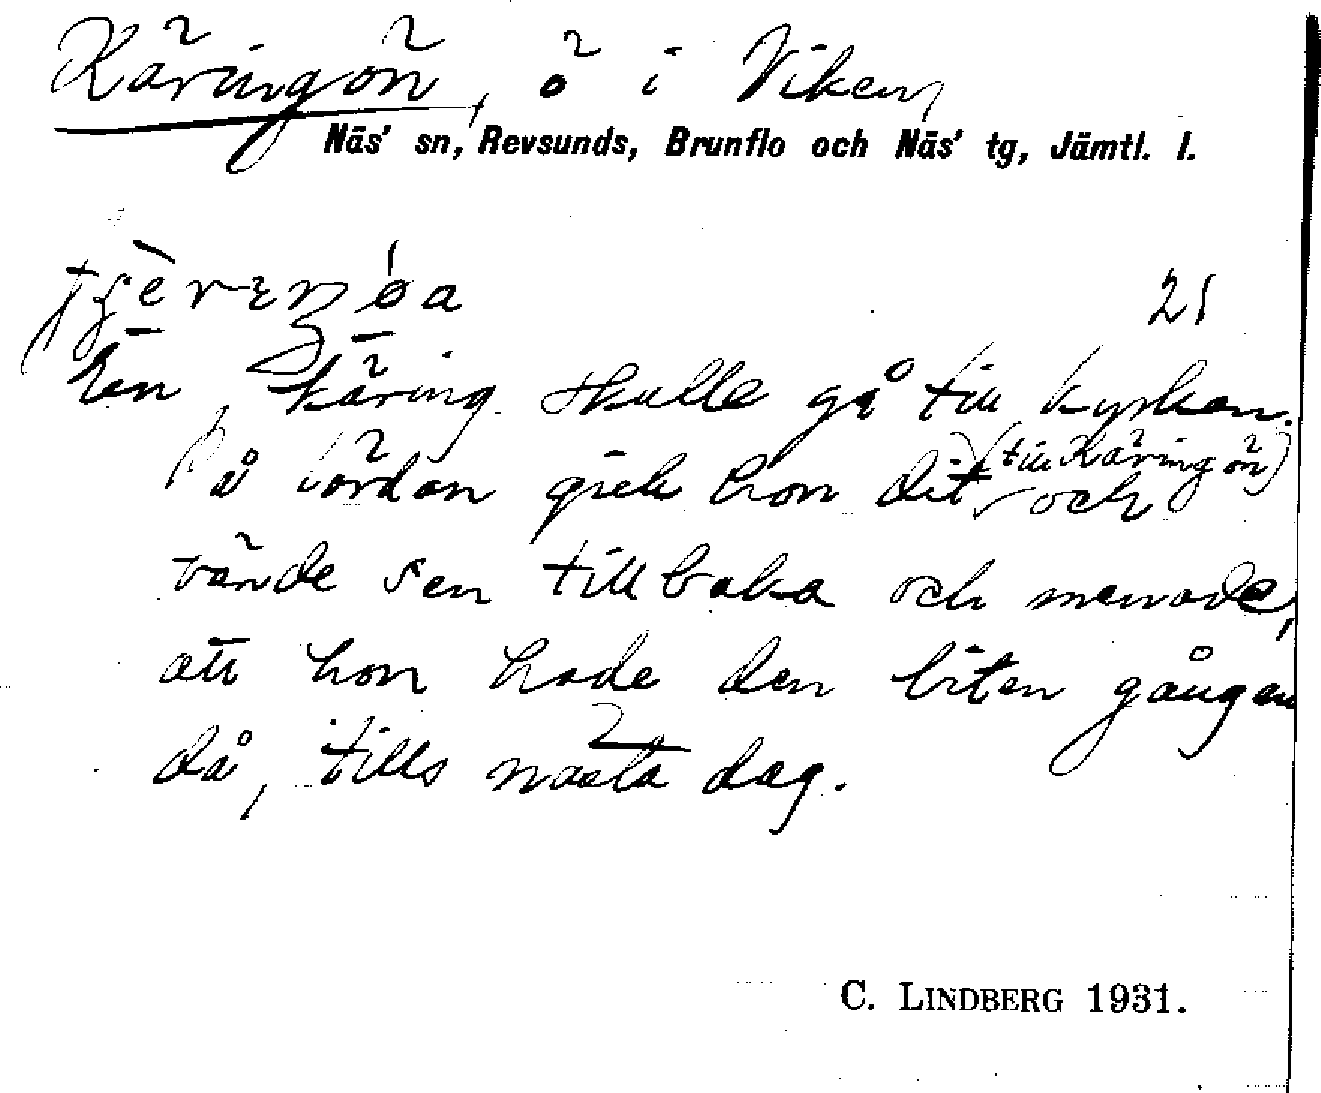 Käringön, ö i Viken,
Näs' sn, Revsunds, Brunflo och Näs' tg, Jämtl. l.
21
En käring skulle gå till kyrkan.
På lördan gick hon dit (till Käringön) och
vände sen tillbaka och menade,
att hon hade den biten gången
då, tills nästa dag.
C. LINDBERG 1931.